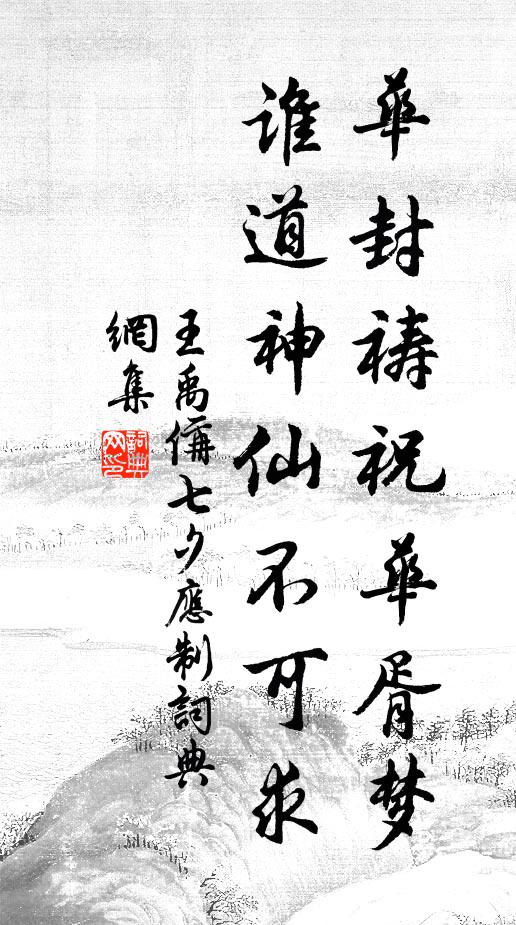 華封祷祝華胥梦
誰道神仙不可求
王禹偁七夕應制詞典
網集
詞典網印